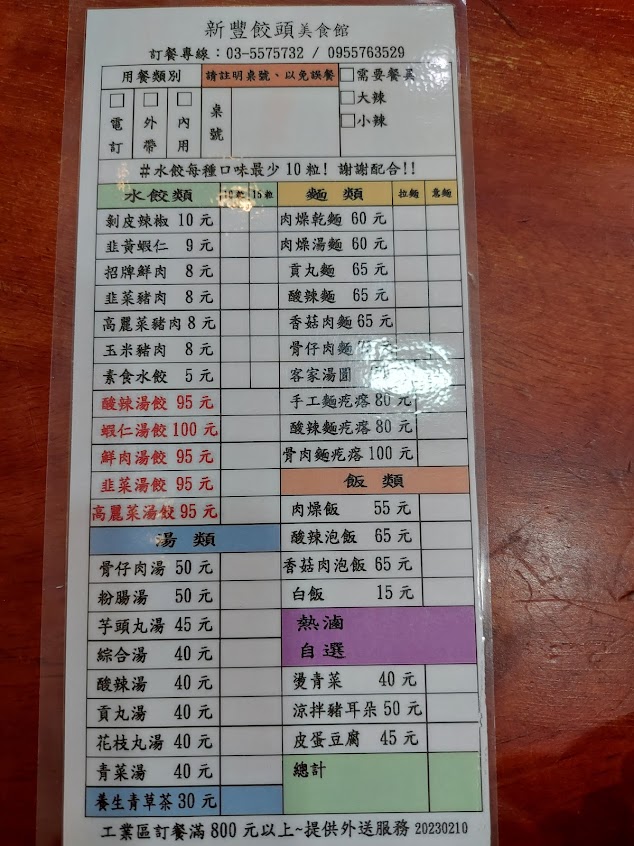 新豐餃頭美食館
訂餐專線：03-5575732 / 0955763529
用餐類別
請註明桌號、以免誤餐
電訂
外帶
內用
桌號
需要餐具
大辣
小辣
＃水餃每種口味最少10粒！謝謝配合!!
水餃類 10粒 15粒
剝皮辣椒 10 元
韭黃蝦仁 9 元
招牌鮮肉 8 元
韭菜豬肉 8 元
高麗菜豬肉 8 元
玉米豬肉 8 元
素食水餃 5 元
酸辣湯餃 95 元
蝦仁湯餃 100 元
鮮肉湯餃 95 元
韭菜湯餃 95 元
高麗菜湯餃 95 元
湯類
骨仔肉湯 50 元
粉腸湯 50 元
芋頭丸湯 45 元
綜合湯 40 元
酸辣湯 40 元
貢丸湯 40 元
花枝丸湯 40 元
青菜湯 40 元
養生青草茶 30 元
麵類 拉麵 意麵
肉燥乾麵 60 元
肉燥湯麵 60 元
貢丸麵 65 元
酸辣麵 65 元
香菇肉麵 65 元
骨仔肉麵 元
客家湯圓
手工麵疙瘩 80 元
酸辣麵疙瘩 80 元
骨肉麵疙瘩 100 元
飯類
肉燥飯 55 元
酸辣泡飯 65 元
香菇肉泡飯 65 元
白飯 15 元
熱滷
自選
燙青菜 40 元
涼拌豬耳朵 50 元
皮蛋豆腐 45 元
總計
工業區訂餐滿 800 元以上~提供外送服務 20230210